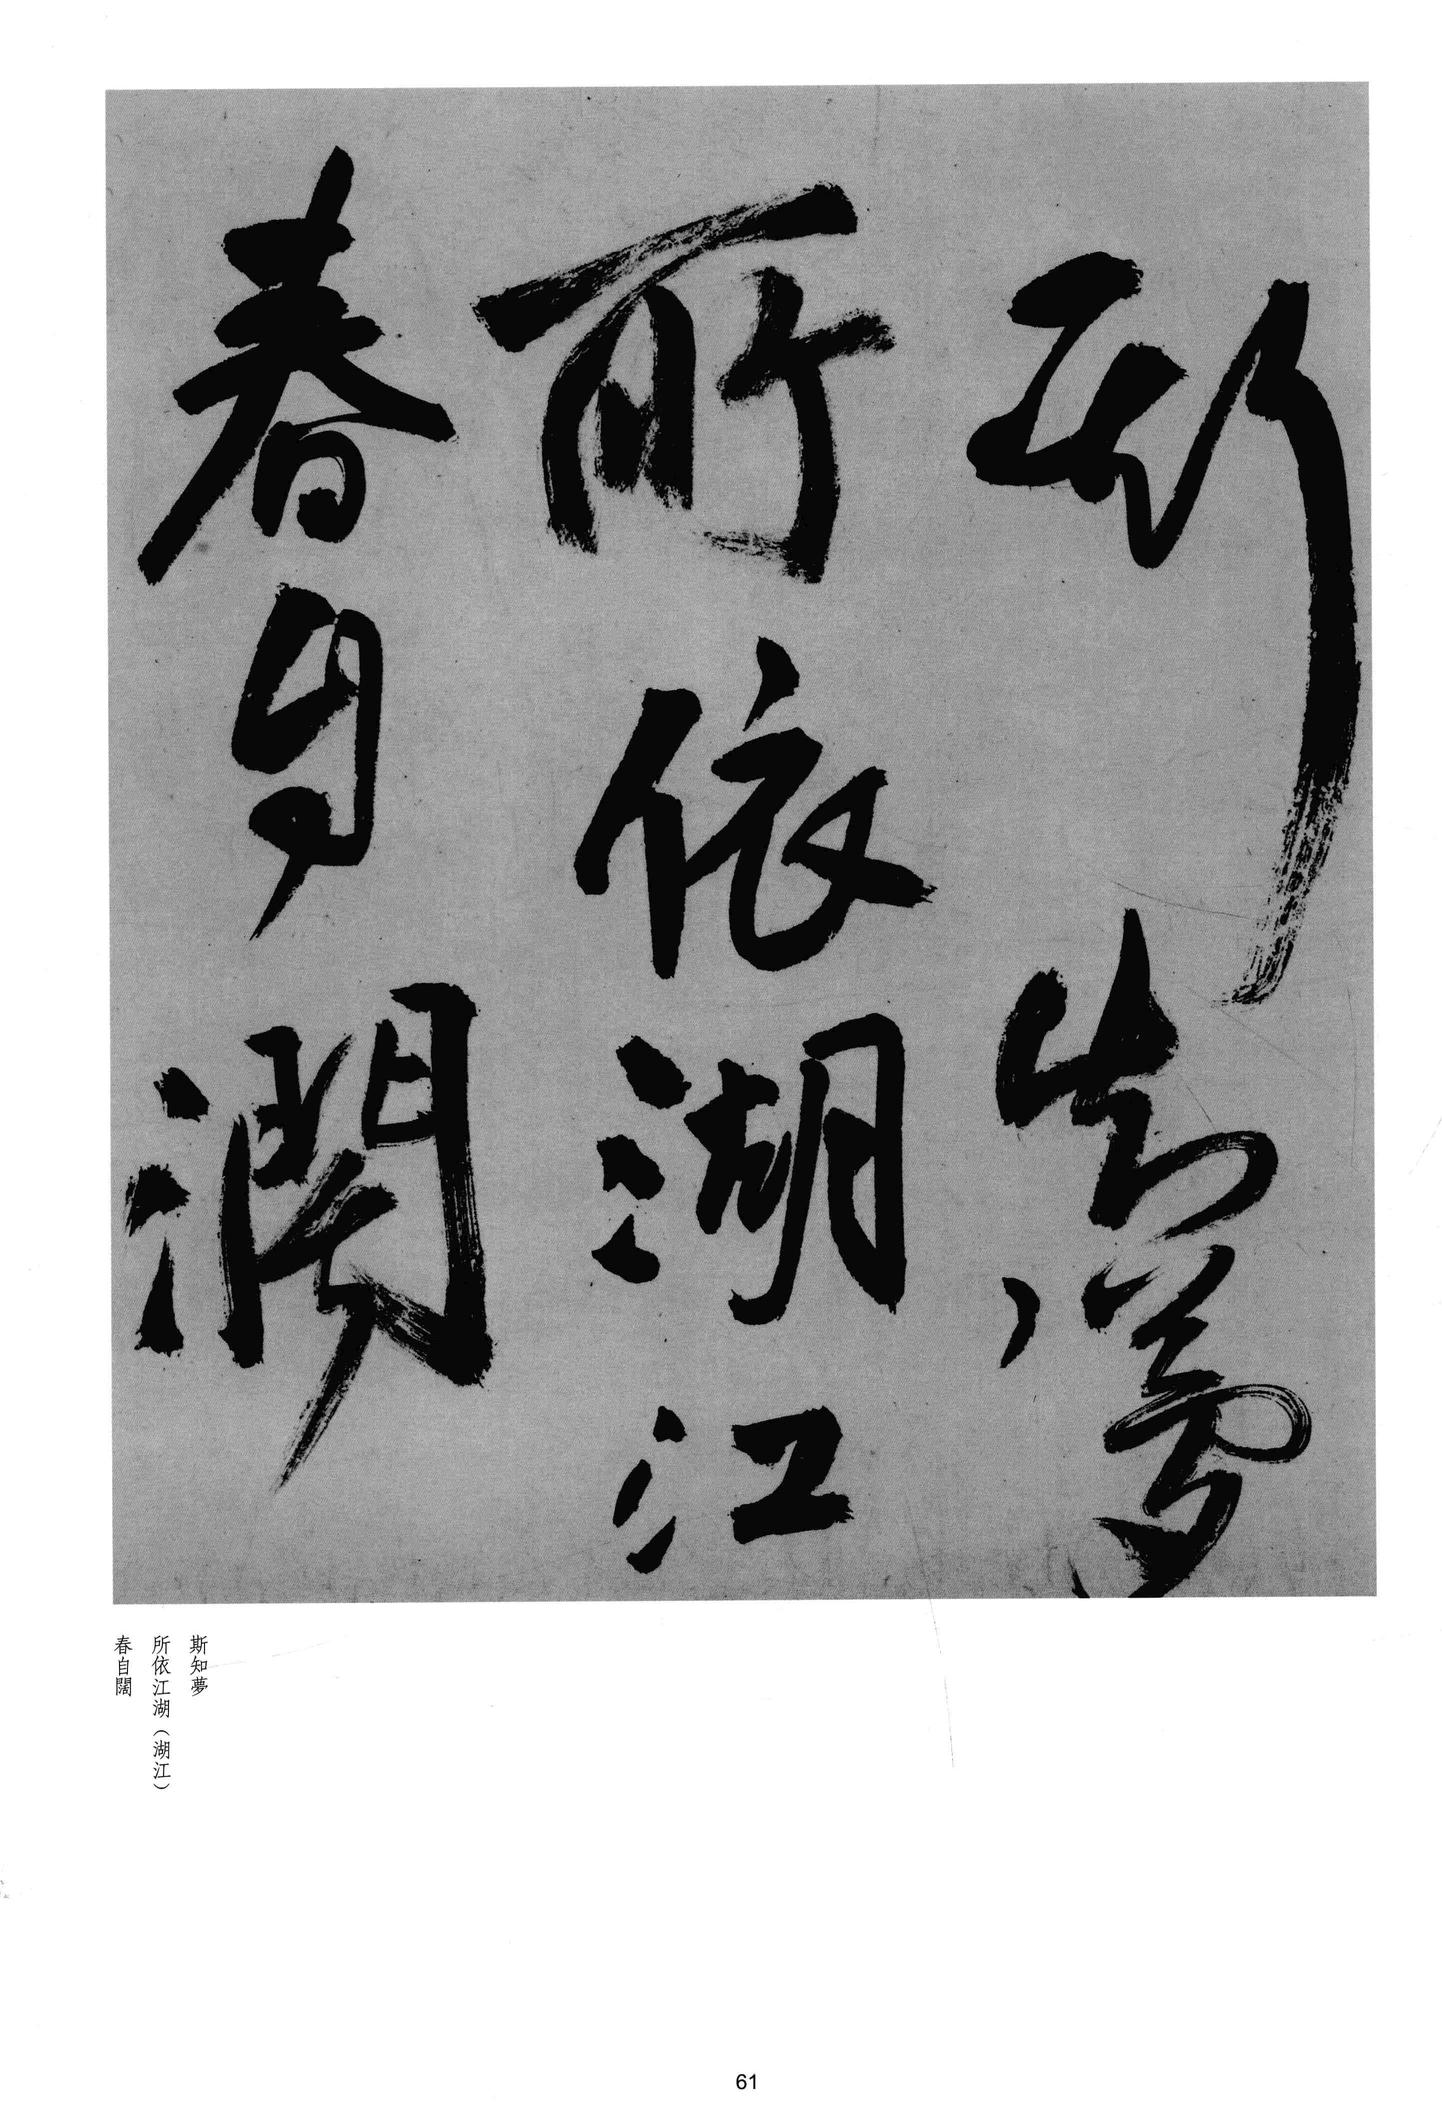 斯知夢
所依湖江
春自濶
斯知夢
所依江湖（湖江）
春自闊
61